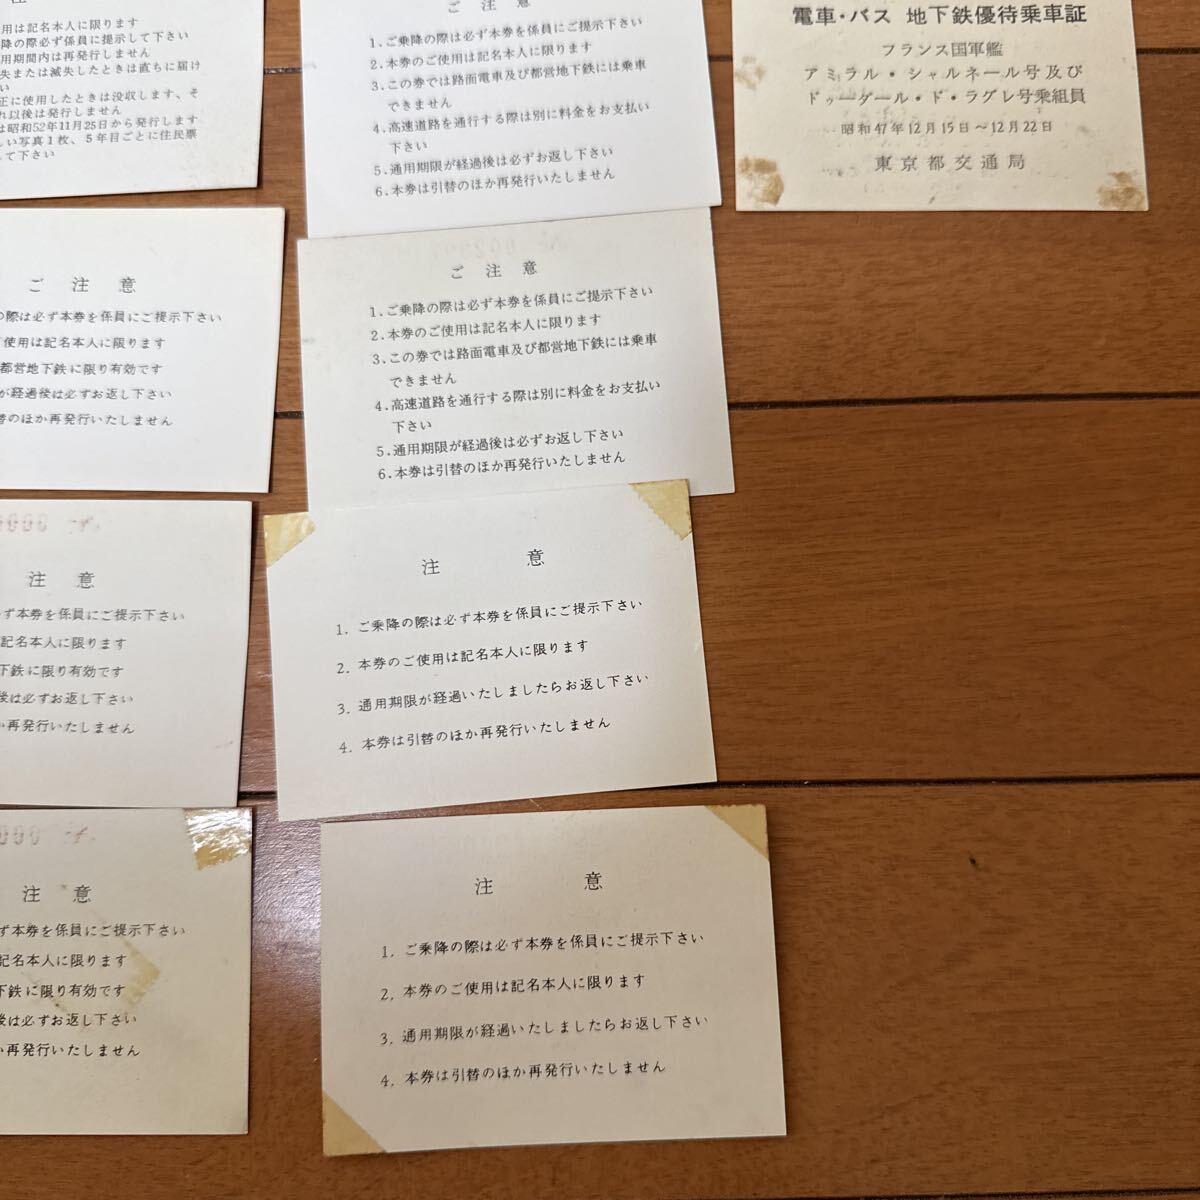 注
用は記名本人に限ります
降の際必ず係員に提示して下さい
用期間内は再発行しません
失または滅失したときは直ちに届け
い
正に使用したときは没収します、そ
れ以後は発行しません
は昭和52年11月25日から発行します
しい写真1枚、5年目ごとに住民票
して下さい
ご 注 意
1、ご乗降の際は必ず本券を係員にご提示下さい
2、本券のご使用は記名本人に限ります
3、この券では路面電車及び都営地下鉄には乗車
できません
4、高速道路を通行する際は別に料金をお支払い
下さい
5、通用期限が経過後は必ずお返し下さい
6、本券は引替のほか再発行いたしません
電車・バス 地下鉄優待乗車証
フランス国軍艦
アミラル・シャルネール号及び
ドゥーダール・ド・ラグレ号乗組員
昭和47年12月15日～12月22日
東京都交通局
ご 注 意
の際は必ず本券を係員にご提示下さい
ご使用は記名本人に限ります
都営地下鉄に限り有効です
が経過後は必ずお返し下さい
引替のほか再発行いたしません
ご 注 意
1、ご乗降の際は必ず本券を係員にご提示下さい
2、本券のご使用は記名本人に限ります
3、この券では路面電車及び都営地下鉄には乗車
できません
4、高速道路を通行する際は別に料金をお支払い
下さい
5、通用期限が経過後は必ずお返し下さい
6、本券は引替のほか再発行いたしません
注 意
ず本券を係員にご提示下さい
記名本人に限ります
下鉄に限り有効です
後は必ずお返し下さい
か再発行いたしません
注 意
1. ご乗降の際は必ず本券を係員にご提示下さい
2. 本券のご使用は記名本人に限ります
3. 通用期限が経過いたしましたらお返し下さい
4. 本券は引替のほか再発行いたしません
注 意
ず本券を係員にご提示下さい
記名本人に限ります
下鉄に限り有効です
後は必ずお返し下さい
か再発行いたしません
注 意
1. ご乗降の際は必ず本券を係員にご提示下さい
2. 本券のご使用は記名本人に限ります
3. 通用期限が経過いたしましたらお返し下さい
4. 本券は引替のほか再発行いたしません